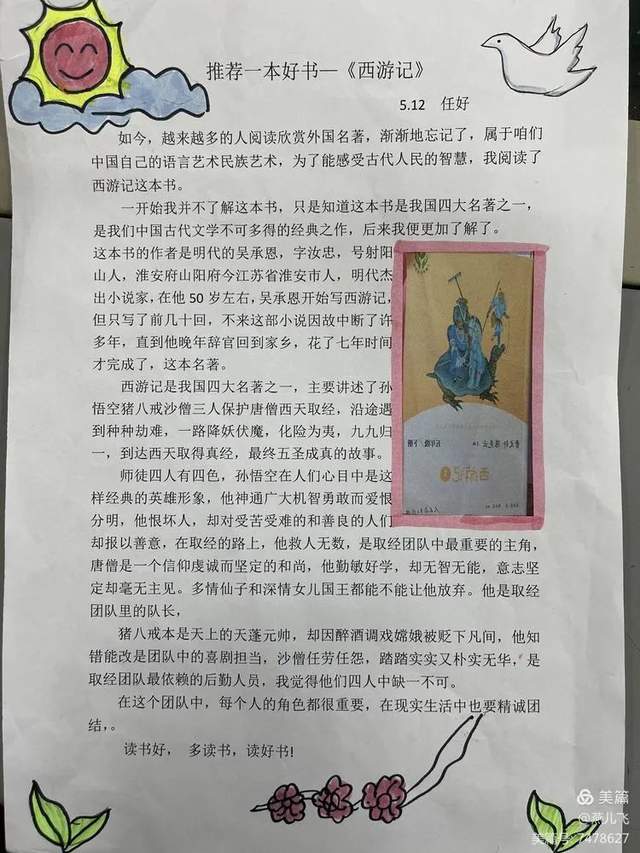 推荐一本好书—《西游记》
5.12 任好
如今，越来越多的人阅读欣赏外国名著，渐渐地忘记了，属于咱们
中国自己的语言艺术民族艺术，为了能感受古代人民的智慧，我阅读了
西游记这本书。
一开始我并不了解这本书，只是知道这本书是我国四大名著之一，
是我们中国古代文学不可多得的经典之作，后来我便更加了解了。
这本书的作者是明代的吴承恩，字汝忠，号射阳
山人，淮安府山阳府今江苏省淮安市人，明代杰
出小说家，在他 50 岁左右，吴承恩开始写西游记，
但只写了前几十回，不来这部小说因故中断了许
多年，直到他晚年辞官回到家乡，花了七年时间
才完成了，这本名著。
西游记是我国四大名著之一，主要讲述了孙
悟空猪八戒沙僧三人保护唐僧西天取经，沿途遇
到种种劫难，一路降妖伏魔，化险为夷，九九归
一，到达西天取得真经，最终五圣成真的故事。
师徒四人有四色，孙悟空在人们心目中是这
样经典的英雄形象，他神通广大机智勇敢而爱恨
分明，他恨坏人，却对受苦受难的和善良的人们
却报以善意，在取经的路上，他救人无数，是取经团队中最重要的主角，
唐僧是一个信仰虔诚而坚定的和尚，他勤敏好学，却无智无能，意志坚
定却毫无主见。多情仙子和深情女儿国王都能不能让他放弃。他是取经
团队里的队长，
猪八戒本是天上的天蓬元帅，却因醉酒调戏嫦娥被贬下凡间，他知
错能改是团队中的喜剧担当，沙僧任劳任怨，踏踏实实又朴实无华，是
取经团队最依赖的后勤人员，我觉得他们四人中缺一不可。
在这个团队中，每个人的角色都很重要，在现实生活中也要精诚团
结，。
读书好， 多读书，读好书!
西游记
美篇
@燕儿飞
美篇号: 7478627